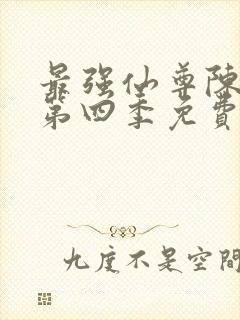 最强仙尊陳
第四季免費
九度不是空間